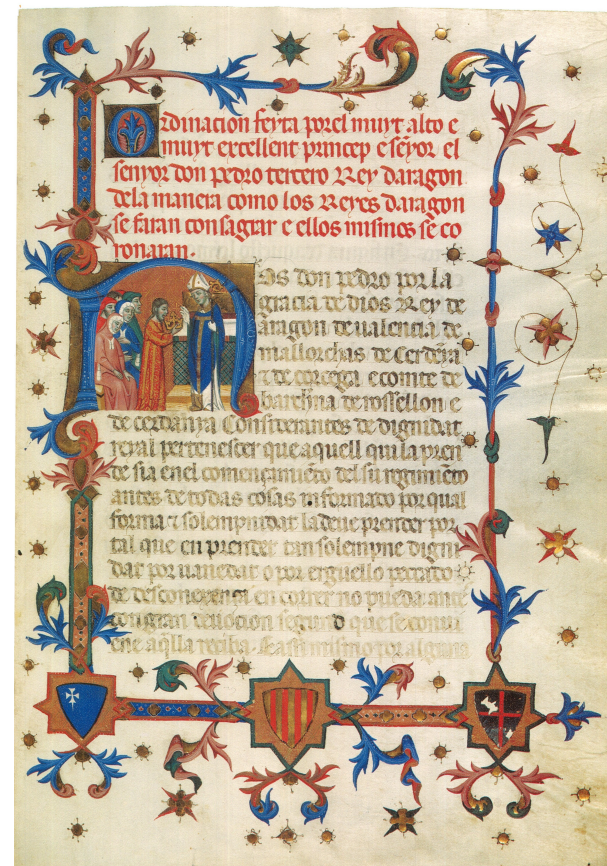 Ordinacion feyta por el muyt alto e
muyt excellent princep e seyor el
senyor don pedro tercero Rey daragon
dela manera como los Reyes daragon
se faran consagrar e ellos mismos se co
ronaran.
Nos don pedro por la
gracia de dios Rey de
aragon de ualencia de
mallorchas de Cerdeña
τ de corcega e comte de
barchna de rossellon e
de cerdanya Considerantes de dignidat
reyal pertenescer que aquell qui la pren
de sia en el començamiēto del su regimiēto
antes de todas cosas informado por qual
forma τ solempnidat la deue prender por
tal que en prender tan solempne digni
dat por uanedat o por erguello peccado
de desconoxença en correr no pueda ante
con gran deuocion segund que se conui
ene aq̄lla reciba. E assi mismo por alguna